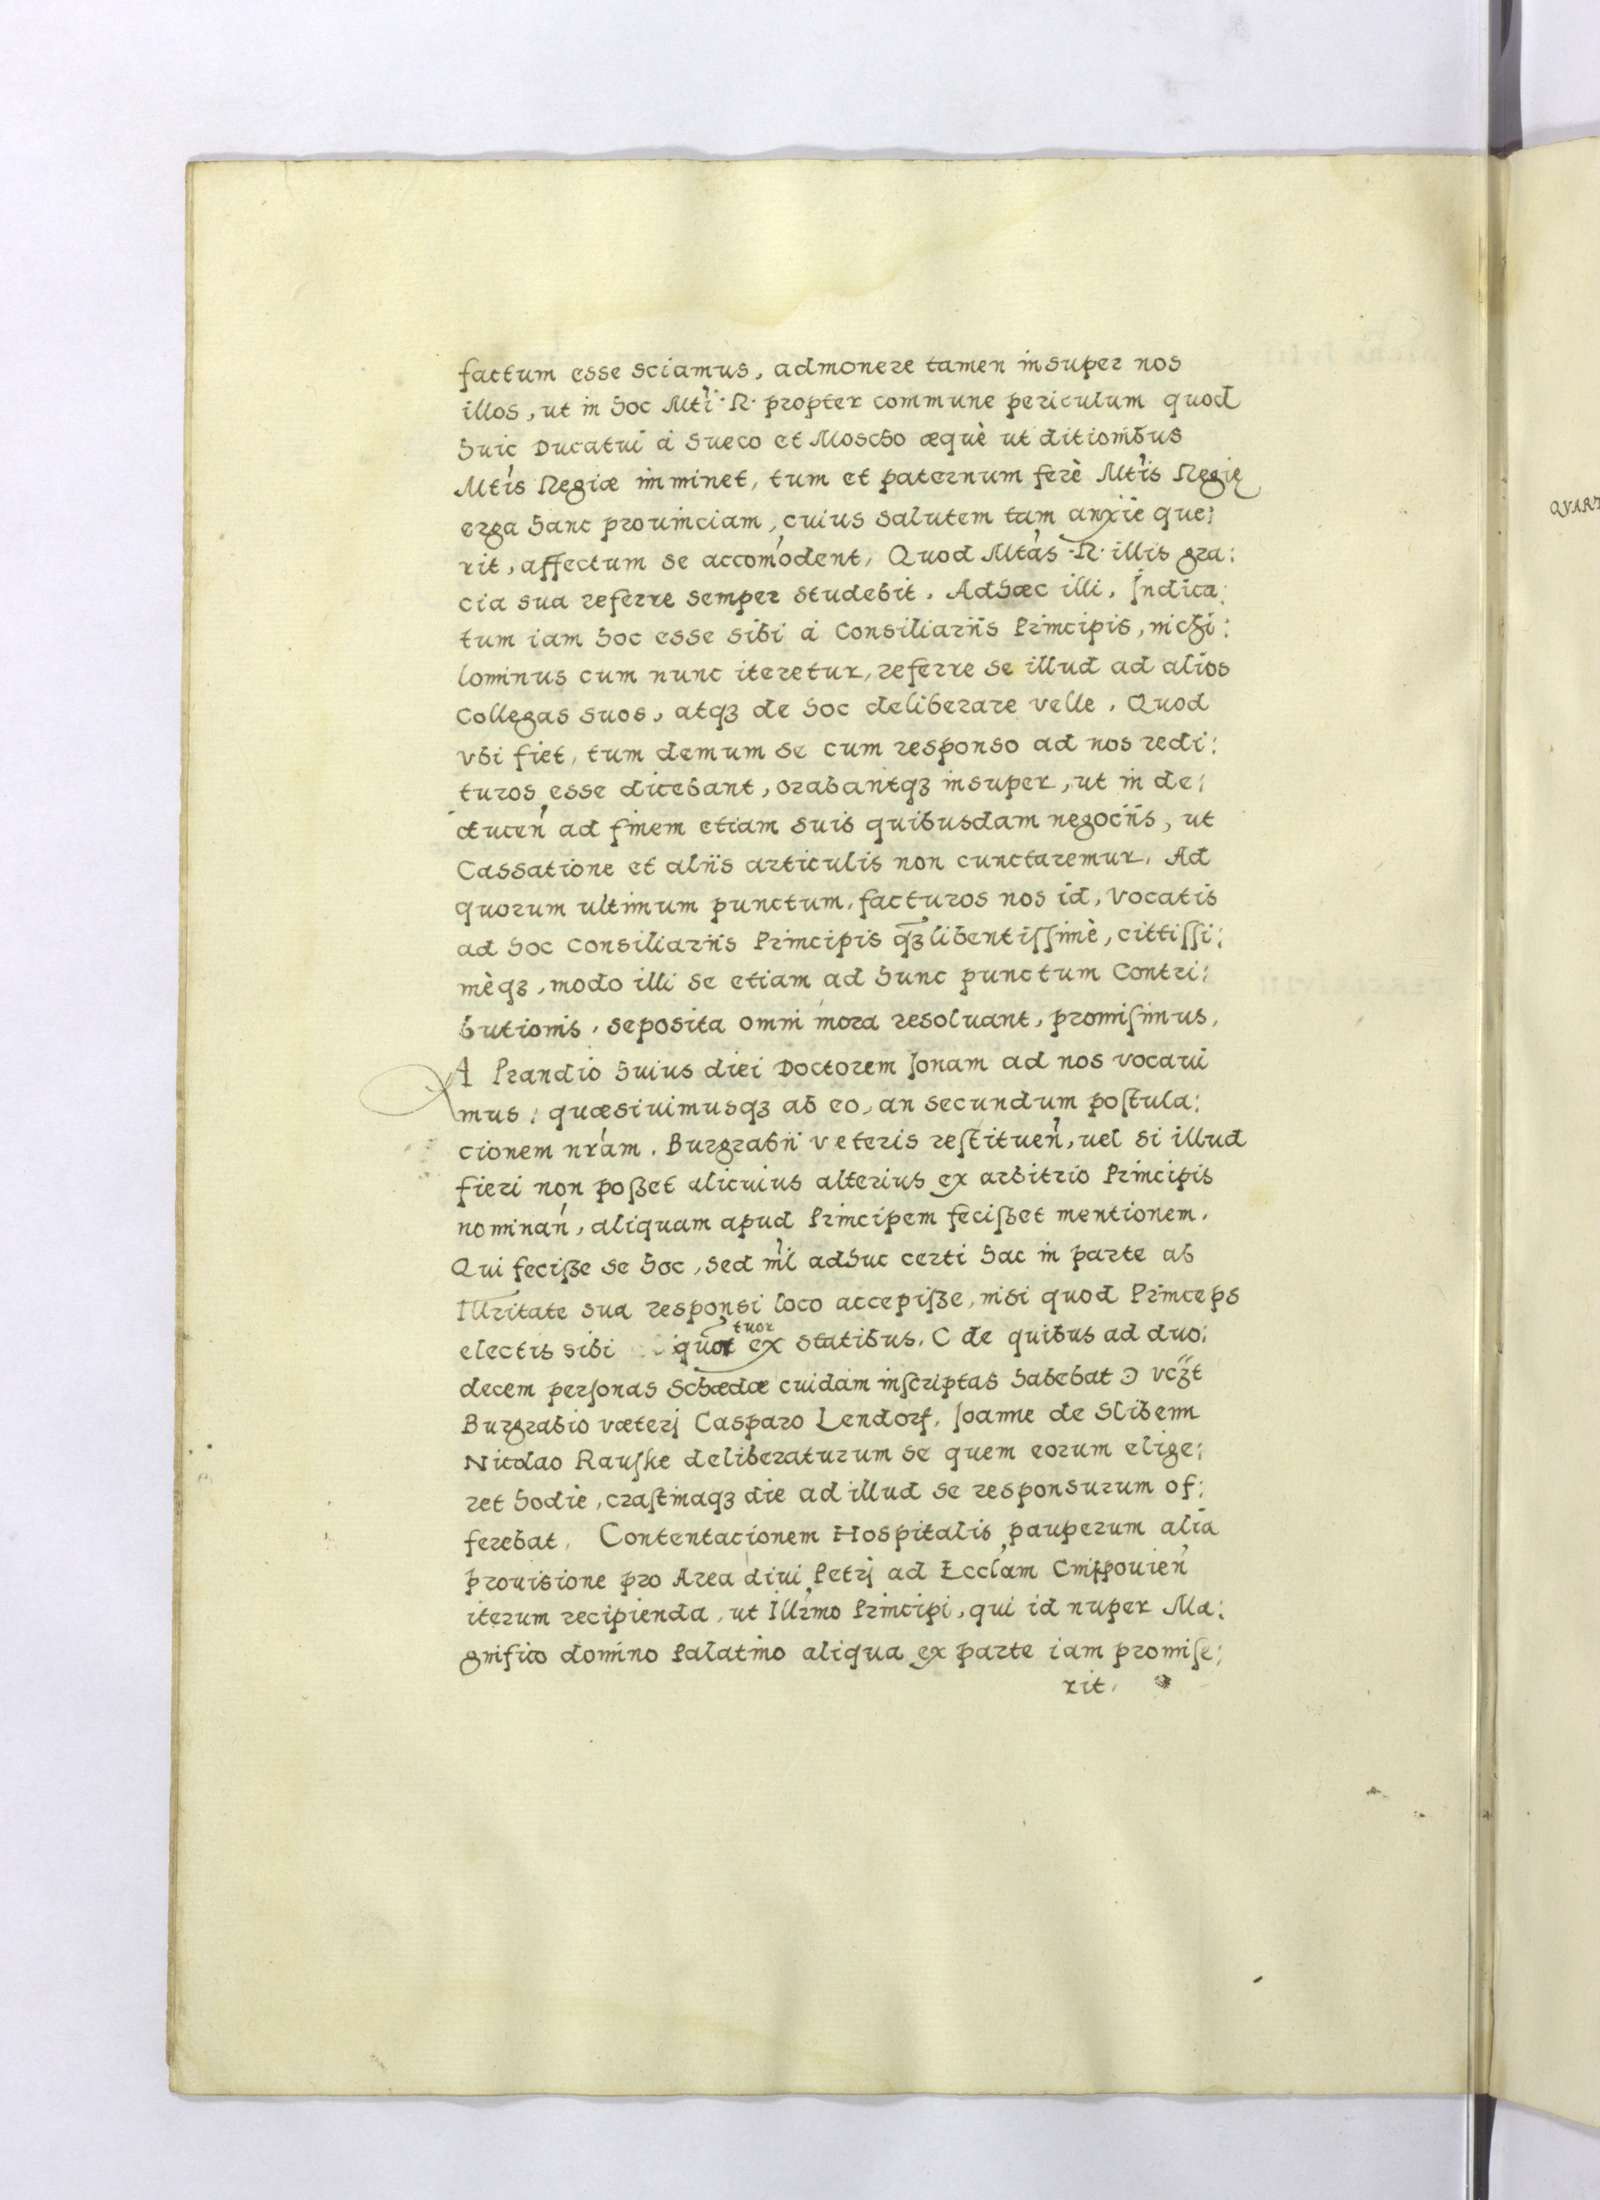 factum esse sciamus, admonere tamen insuper nos
illos, ut in hoc Mti R. propter commune periculum quod
huic Ducatui à Sueco et Moscho æquè ut ditionibus
Mtis Regiæ imminet, tum et paternum ferè Mtis Regię
erga hanc prouinciam, cuius salutem tam anxiè que:
rit, affectum se accom̃odent, Quod Mtas R. illis gra:
cia sua referre semper studebit. Adhæc illi, Indica:
tum iam hoc esse sibi à Consiliariis Principis, nichi:
lominus cum nunc iteretur, referre se illud ad alios
Collegas suos, atqꝫ de hoc deliberare velle. Quod
vbi fiet, tum demum se cum responso ad nos redi:
turos esse dicebant, orabantqꝫ insuper, ut in de:
ducen̄ ad finem etiam suis quibusdam negociis, ut
Cassatione et aliis articulis non cunctaremur. Ad
quorum ultimum punctum, facturos nos id, vocatis
ad hoc Consiliariis Principis qꝫ libentiſſimè, cittiſſi:
mèqꝫ, modo illi se etiam ad hunc punctum Contri:
butionis, seposita omni mora resoluant, promiſimus,
A Prandio huius diei Doctorem Jonam ad nos vocaui
mus: quæsiuimusqꝫ ab eo, an secundum poſtula:
cionem nr̄am. Burgrabii veteris reſtituen̄, uel si illud
fieri non poßet alicuius alterius ex arbitrio Principis
nominan̄, aliquam apud Principem fecißet mentionem.
Qui feciße se hoc, sed nil adhuc certi hac in parte ab
Illr̄itate sua responsi loco accepiße, nisi quod Princeps
tuor
electis sibi quot ex statibus, C de quibus ad duo:
decem perſonas Schædæ cuidam inſcriptas habebat Ͻ vcꝫt
Burgrabio væterj Casparo Lendorf, Joanne de Slibenn
Nicolao Rauſke deliberaturum se quem eorum elige:
ret hodiè, craſtinaqꝫ die ad illud se responsurum of:
ferebat. Contentacionem Hospitalis pauperum alia
prouisione pro Area diui Petrj ad Eccl̄am Cnippouien̄
iterum recipienda, ut Illr̄mo Principi, qui id nuper Ma:
gnifico domino Palatino aliqua ex parte iam promiſe:
rit.
QVART